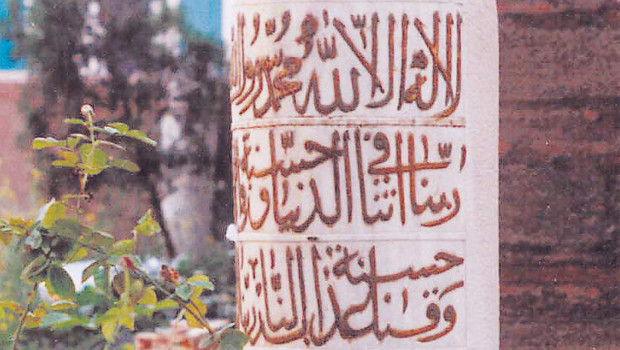 لا اله الا الله محمد رسول الله
ربنا اتنا في الدنيا حسنة و
حسنة وقنا عذاب النار